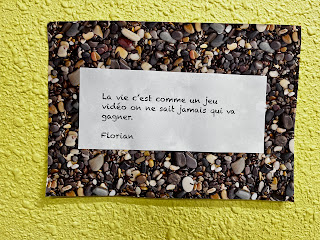 La vie c'est comme un jeu
vidéo on ne sait jamais qui va
gagner.
Florian